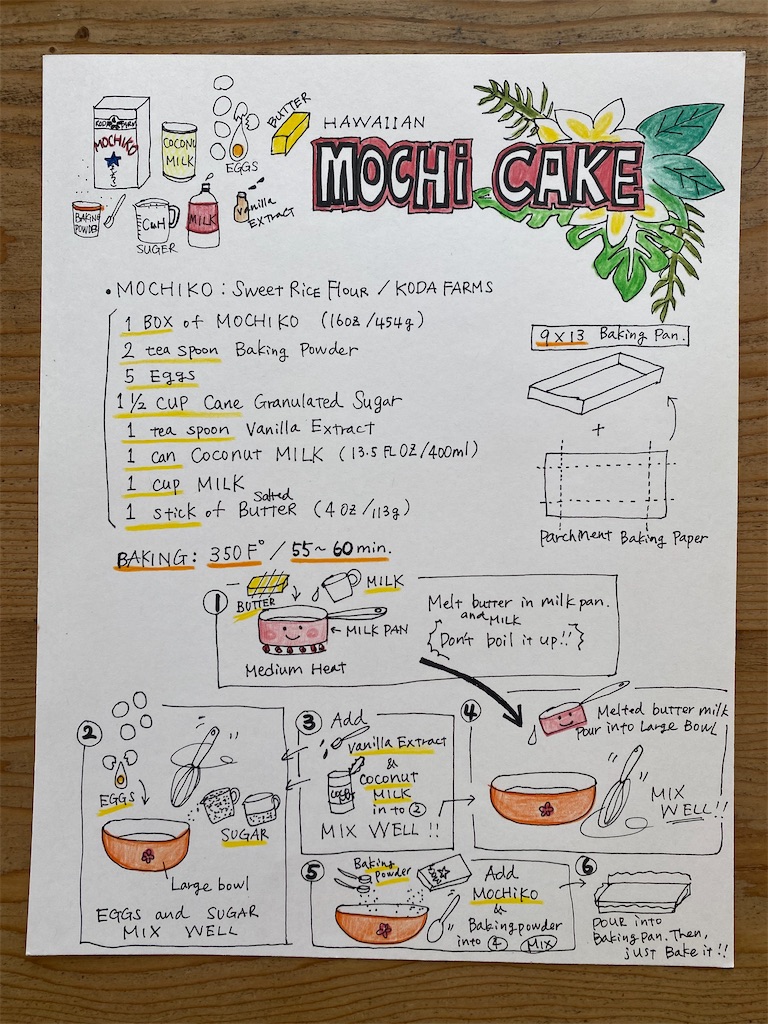 KODA FARMS
MOCHIKO
COCONU
MILK
EGGS
BUTTER
BAKING
POWDER
C&H
SUGER
MILK
Vanilla
EXTRACT
HAWAIIAN
MOCHi CAKE
• MOCHIKO : Sweet Rice Flour / KODA FARMS
1 BOX of MOCHIKO (16oz/454g)
2 tea spoon Baking Powder
5 Eggs
1 1/2 CUP Cane Granulated Sugar
1 tea spoon Vanilla Extract
1 can Coconut MILK (13.5 FL OZ/400ml)
1 cup MILK
1 stick of Salted Butter (4 oz/113g)
9 x 13 Baking Pan.
+
Parchment Baking Paper
BAKING: 350 F° / 55~60 min.
①
BUTTER
MILK
← MILK PAN
Medium Heat
Melt butter in milk pan.
and MILK
Don't boil it up!!
②
EGGS
SUGAR
Large bowl
EGGS and SUGAR
MIX WELL
③ Add
Vanilla Extract
&
Coconut
MILK
in to ②
MIX WELL !!
④
Melted butter milk
Pour into Large Bowl
MIX
WELL!!
⑤
Baking
Powder
Add
MOCHIKO
&
Baking powder
into ④ MIX
⑥
POUR into
Baking Pan. Then,
just Bake it!!